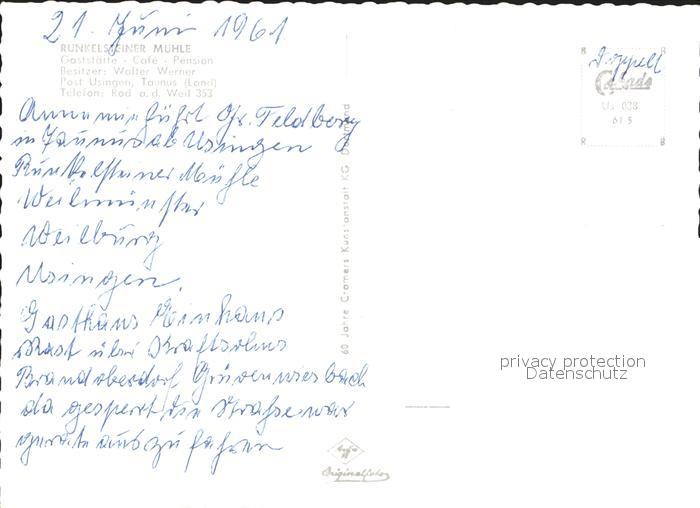 21. Juni 1961
RUNKELSTEINER MÜHLE
Gaststätte - Café - Pension
Besitzer: Walter Werner
Post Usingen, Taunus (Land)
Telefon: Rod a. d. Weil 353
Doppelt
Cekade
Us 038
61 5
R
B
führt Gr. Feldberg
in Taunus ab Usingen
Runkelsteiner Mühle
Weilmünster
Weilburg
Usingen.
Gasthaus
Rast über Kraftsolms
Brandoberdorf Grävenwiesbach
da gesperrt die Straße war
auszufahren
60 Jahre Cramers Kunstanstalt KG Dortmund
privacy protection
Datenschutz
Agfa
Originalfoto